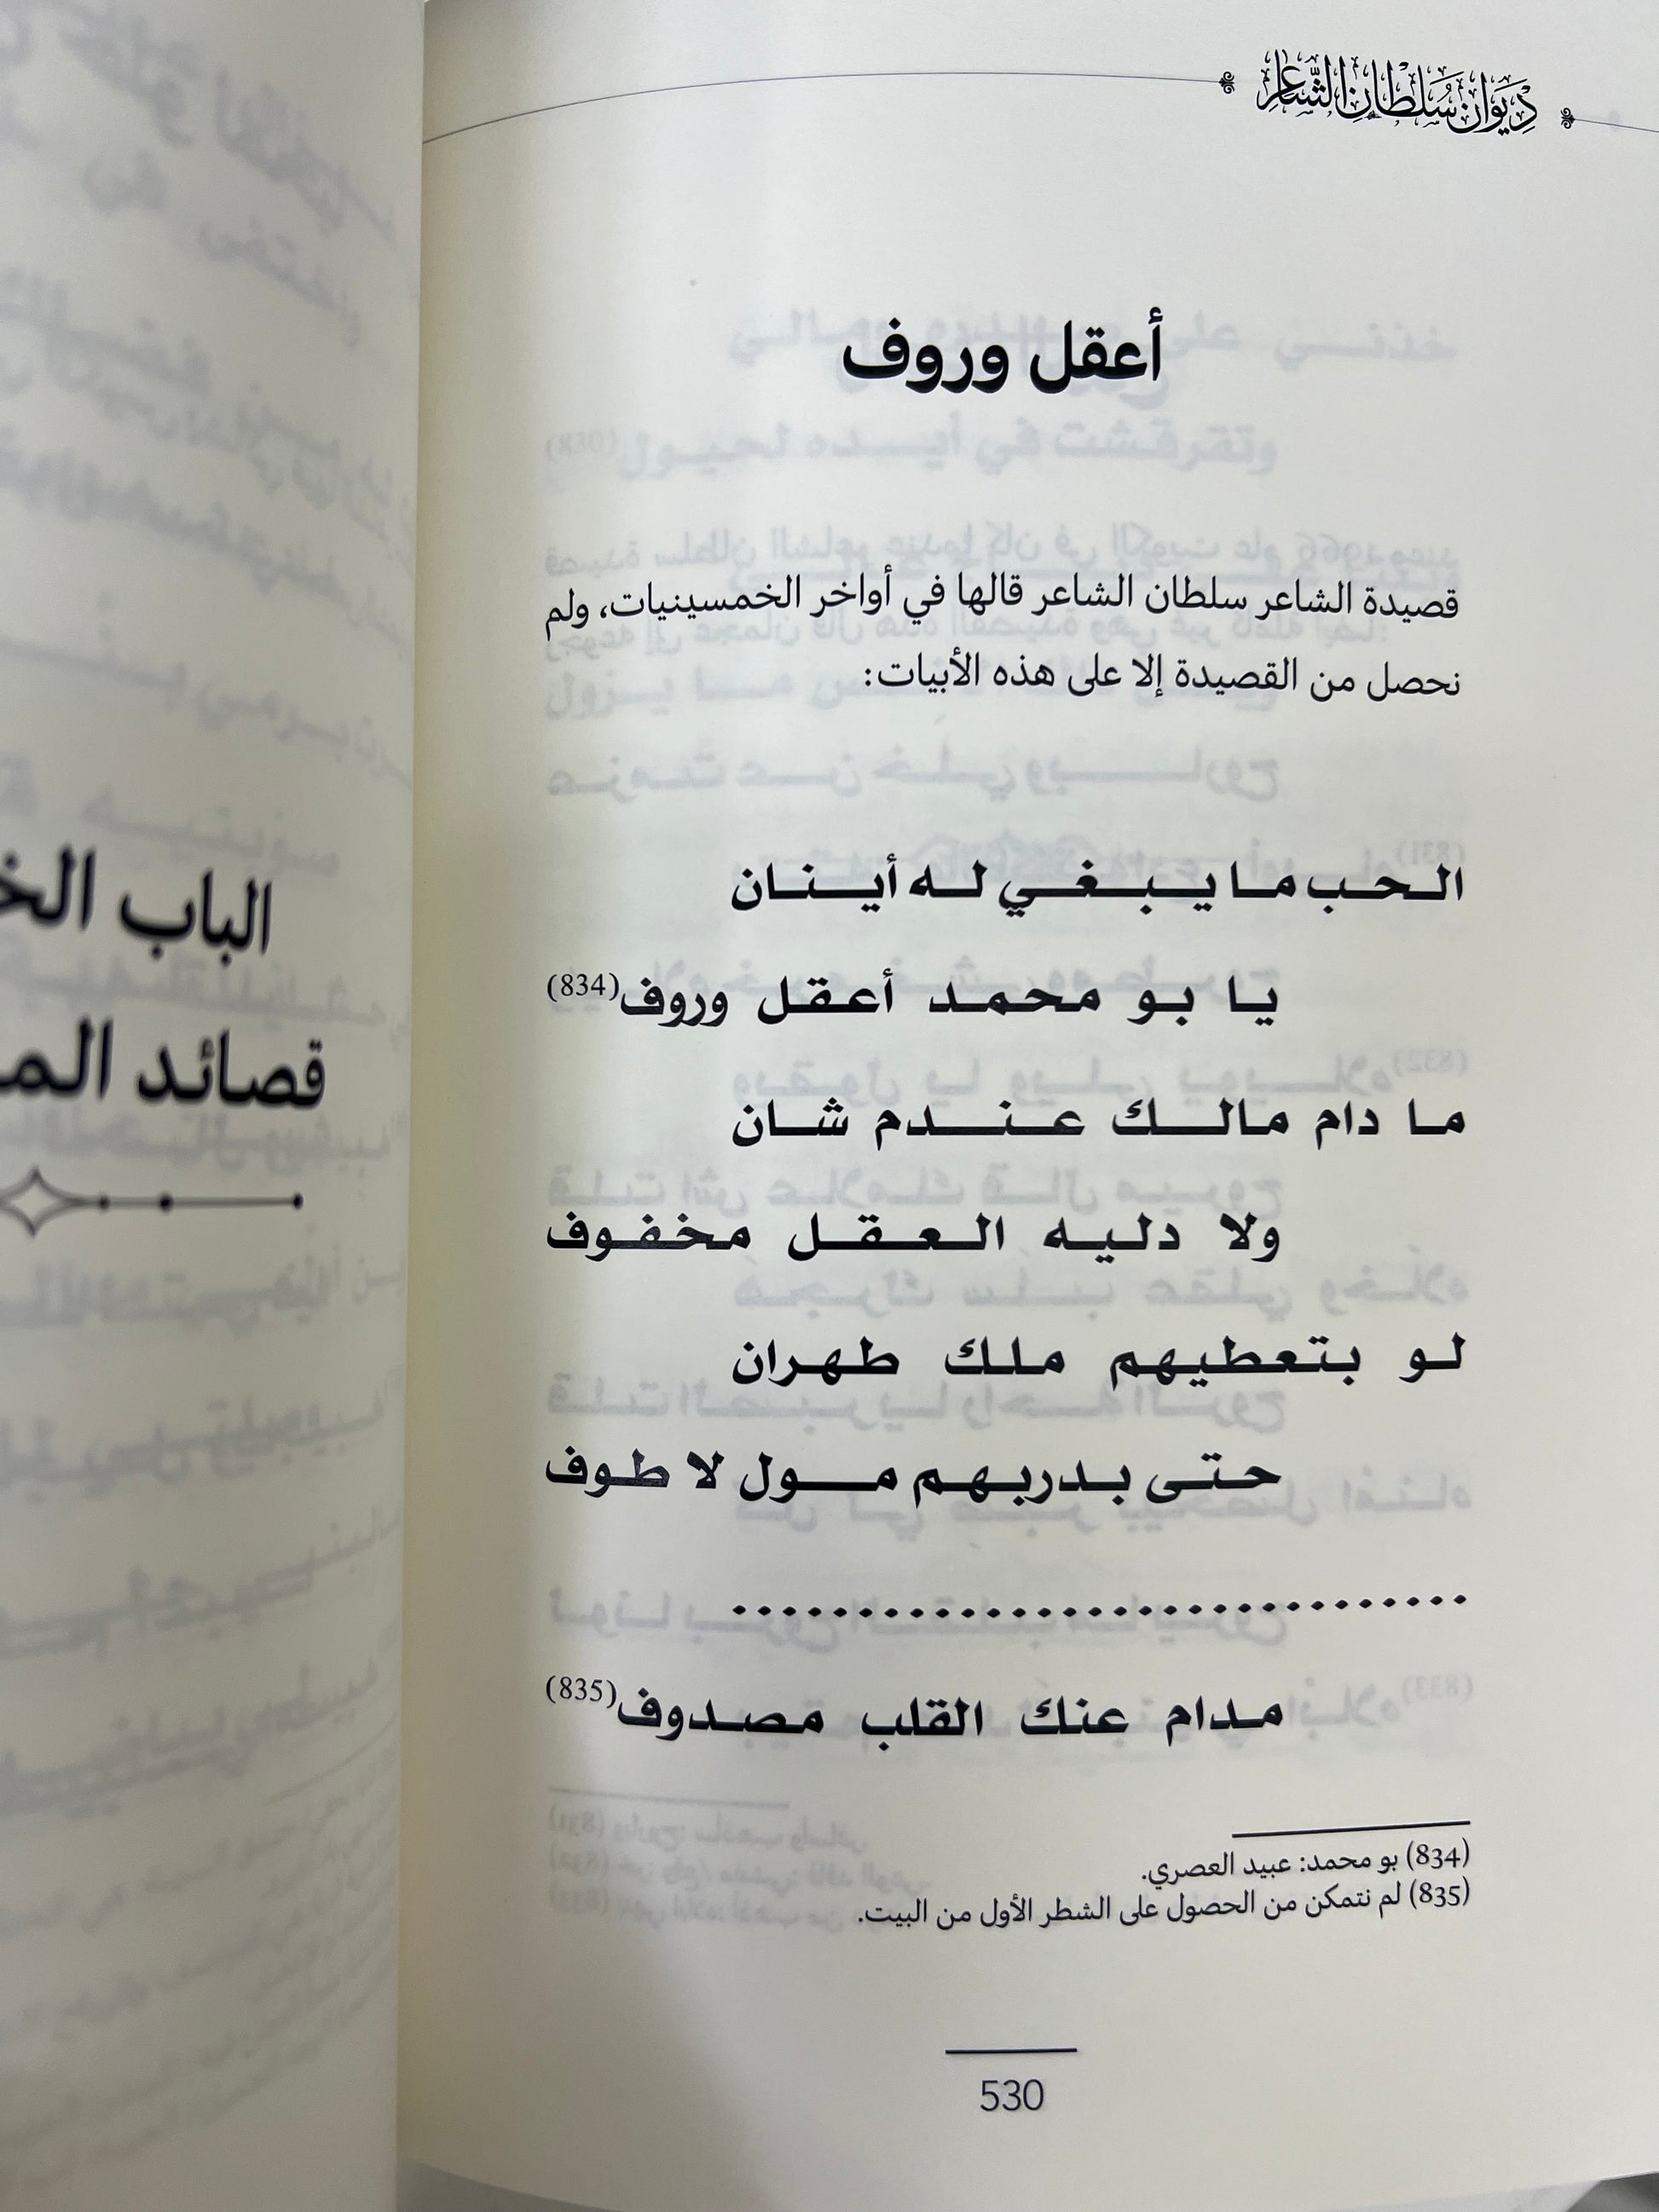 ديوان سلطان الشاعر
أعقل وروف
قصيدة الشاعر سلطان الشاعر قالها في أواخر الخمسينيات، ولم
نحصل من القصيدة إلا على هذه الأبيات:
الحب ما يبغي له أينان
يا بو محمد أعقل وروف(834)
ما دام مالك عندم شان
ولا دليه العقل مخفوف
لو بتعطيهم ملك طهران
حتى بدربهم مول لا طوف
................................
مدام عنك القلب مصدوف(835)
(834) بو محمد: عبيد العصري.
(835) لم نتمكن من الحصول على الشطر الأول من البيت.
530
الباب
قصائد